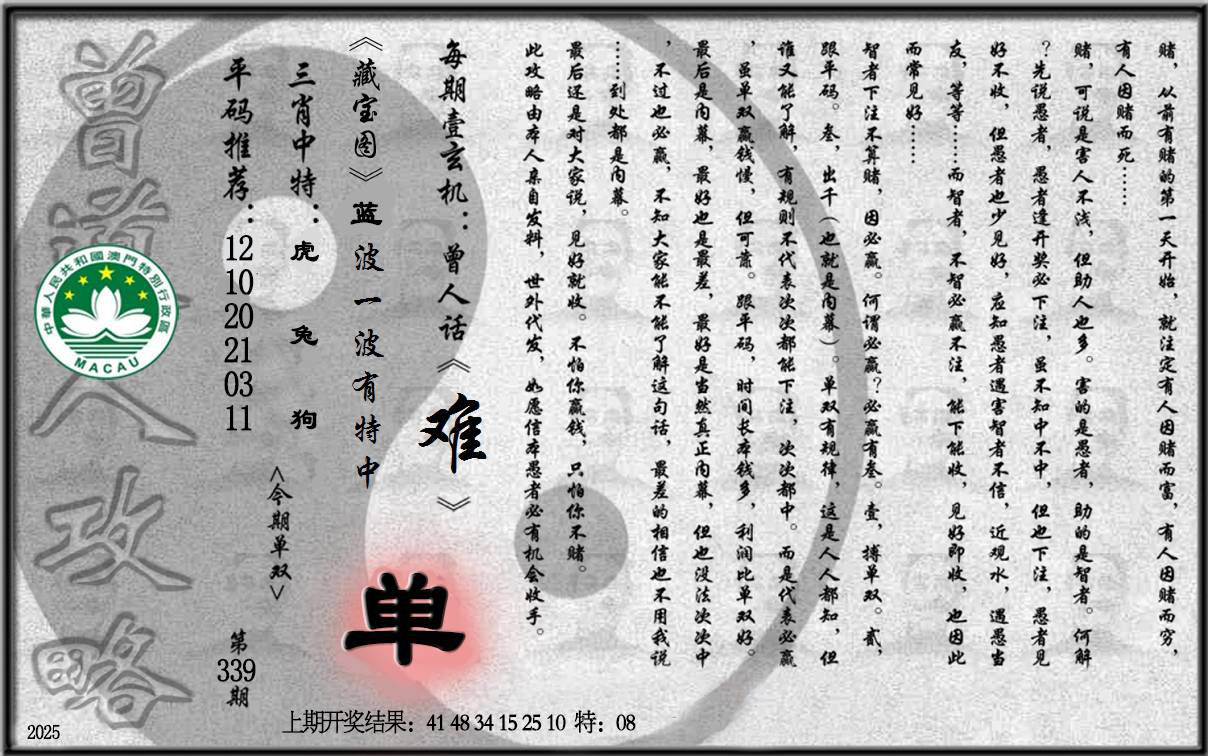 赌，从前有赌的第一天开始，就注定有人因赌而富，有人因赌而穷，
有人因赌而死……
赌，可说是害人不浅，但助人也多。害的是愚者，助的是智者。何解
？先说愚者，愚者逢开奖必下注，虽不知中不中，但也下注，愚者见
好不收，但愚者也少见好，应知愚者遇害智者不信，近观水，遇愚当
友，等等……而智者，不智必赢不注，能下能收，见好即收，也因此
而常见好……
智者下注不算赌，因必赢。何谓必赢？必赢有叁。壹，搏单双。贰，
跟平码。叁，出千（也就是内幕）。单双有规律，这是人人都知，但
谁又能了解，有规则不代表次次都能下注，次次都中。而是代表必赢
，虽单双赢钱慢，但可靠。跟平码，时间长本钱多，利润比单双好。
最后是内幕，最好也是最差，最好是当然真正内幕，但也没法次次中
，不过也必赢，不知大家能不能了解这句话，最差的相信也不用我说
……到处都是内幕。
最后还是对大家说，见好就收。不怕你赢钱，只怕你不赌。
此攻略由本人亲自发料，世外代发，如愿信本愚者必有机会收手。
每期壹玄机：曾人话《难》
《藏宝图》蓝波一波有特中
单
三肖中特：虎兔狗
<今期单双>
平码推荐：12 10 20 21 03 11
第339期
曾道人攻略
中華人民共和國澳門特別行政區
MACAU
上期开奖结果：41 48 34 15 25 10 特：08
2025